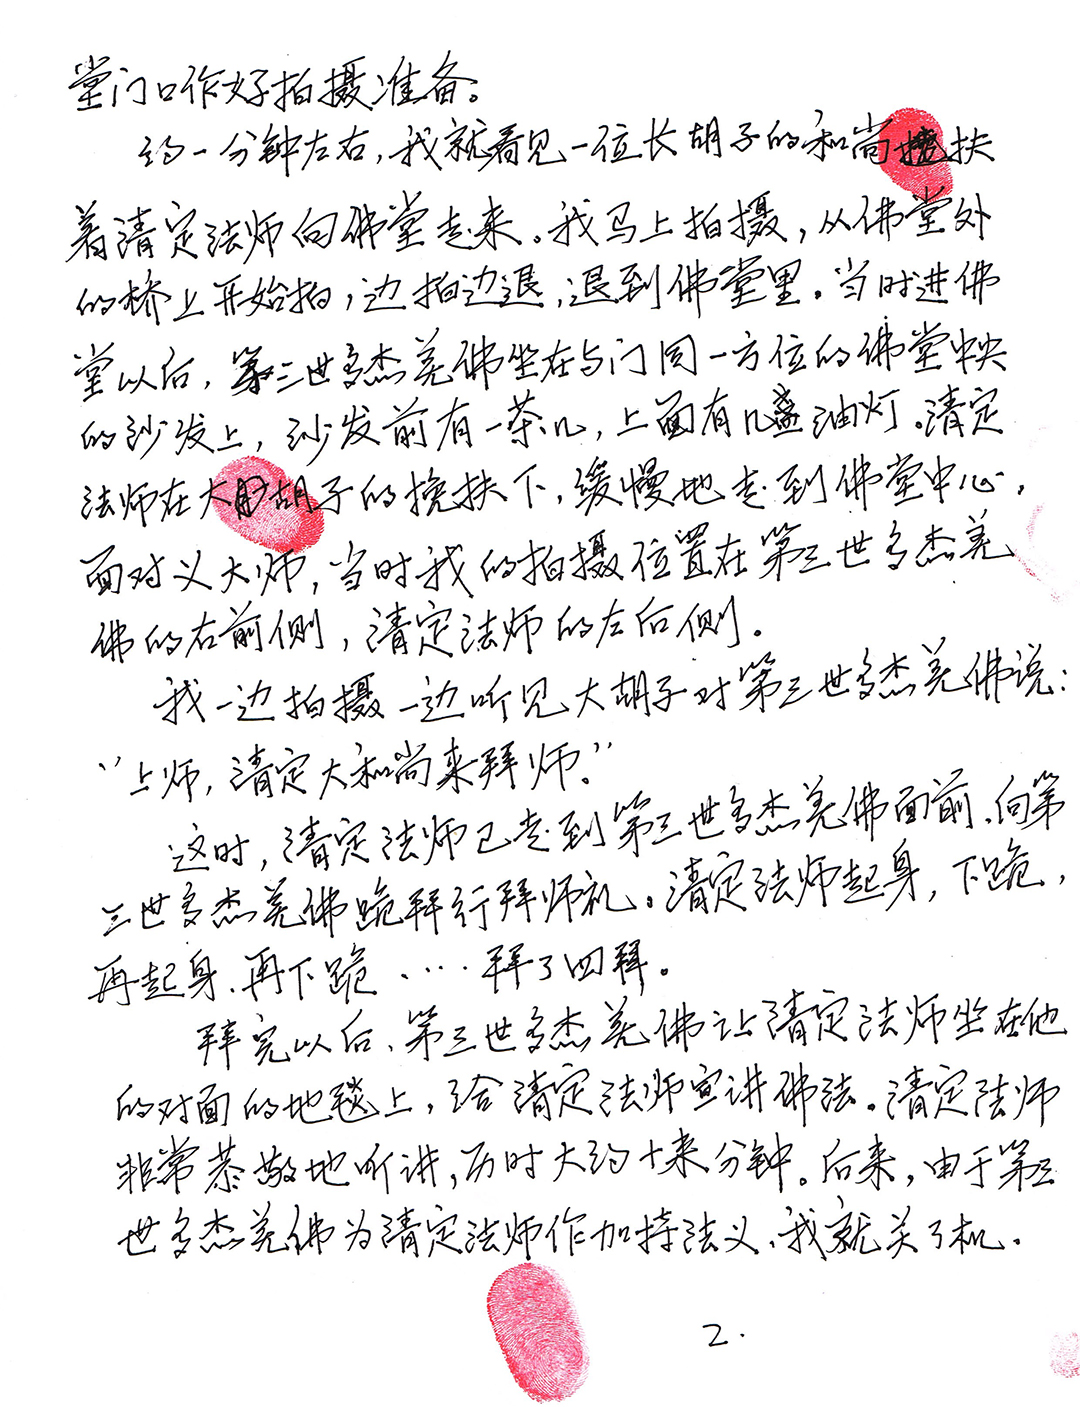 堂门口作好拍摄准备。
约一分钟左右，我就看见一位长胡子的和尚搀扶
着清定法师向佛堂走来。我马上拍摄，从佛堂外
的桥上开始拍，边拍边退，退到佛堂里。当时进佛
堂以后，第三世多杰羌佛坐在与门同一方位的佛堂中央
的沙发上，沙发前有一茶几，上面有几盏油灯。清定
法师在大胡子的搀扶下，缓慢地走到佛堂中心，
面对义大师，当时我的拍摄位置在第三世多杰羌
佛的右前侧，清定法师的左后侧。
我一边拍摄一边听见大胡子对第三世多杰羌佛说：
“上师，清定大和尚来拜师。”
这时，清定法师已走到第三世多杰羌佛面前、向第
三世多杰羌佛跪拜行拜师礼。清定法师起身，下跪，
再起身、再下跪……拜了四拜。
拜完以后、第三世多杰羌佛让清定法师坐在他
的对面的地毯上，给清定法师宣讲佛法。清定法师
非常恭敬地听讲，历时大约十来分钟。后来，由于第三
世多杰羌佛为清定法师作加持法义、我就关了机。
2.